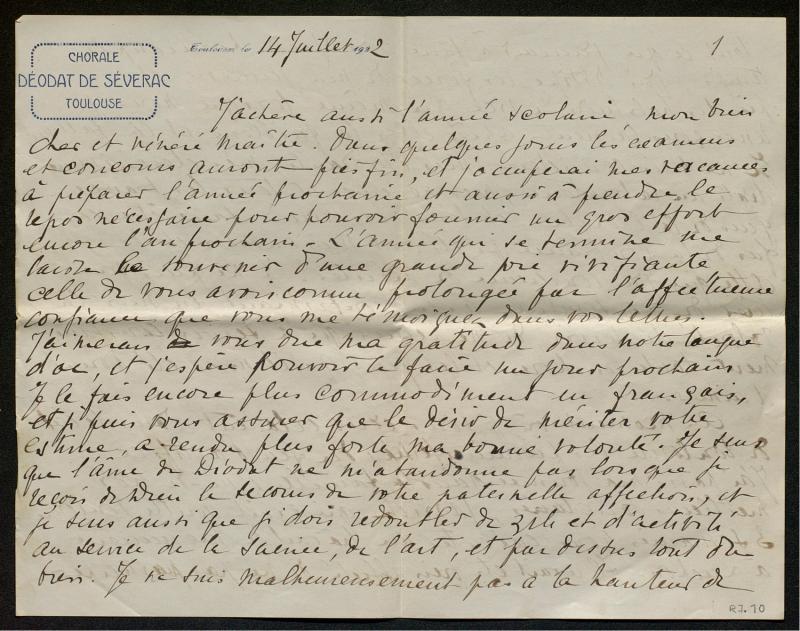 CHORALE
DÉODAT DE SÉVERAC
TOULOUSE
Toulouse le 14 Juillet 1922
1
J'achève aussi l'année scolaire mon bien
cher et vénéré maître. Dans quelques jours les examens
et concours auront pris fin, et j'occuperai mes vacances
à préparer l'année prochaine et aussi à prendre le
repos nécessaire pour pouvoir fournir un gros effort
encore l'an prochain. L'année qui se termine me
laisse le souvenir d'une grande joie vivifiante
celle de vous avoir connu prolongée par l'affectueuse
confiance que vous me témoignez dans vos lettres.
J'aimerais vous dire ma gratitude dans notre langue
d'oc, et j'espère pouvoir le faire un jour prochain
Je le fais encore plus commodément en français,
et je puis vous assurer que le désir de mériter votre
estime, a rendu plus forte ma bonne volonté. Je sens
que l'âme de Déodat ne m'abandonne pas lorsque je
reçois de Dieu le secours de votre paternelle affection, et
je sens aussi que je dois redoubler de zèle et d'activité
au service de la science, de l'art, et par dessus tout du
bien. Je ne suis malheureusement pas à la hauteur de
R7.10